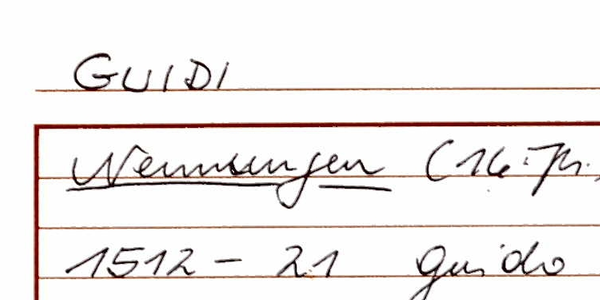 GUIDI
Nennungen (16. Jh.)
1512 - 21 Guido